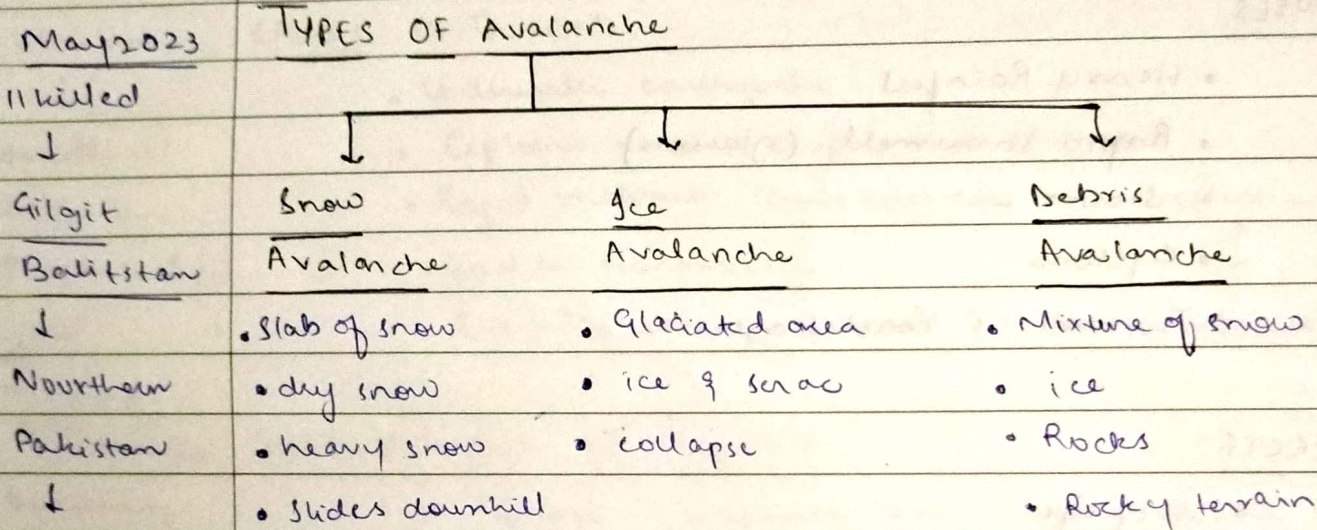 May 2023
11 killed
↓
Gilgit
Balitstan
↓
Nourthern
Pakistan
↓
TYPES OF Avalanche
Snow
Avalanche
• Slab of snow
• dry snow
• heavy snow
• Slides downhill
Ice
Avalanche
• Glaciated area
• ice & serac
• collapse
Debris
Avalanche
• Mixture of snow
• ice
• Rocks
• Rocky terrain